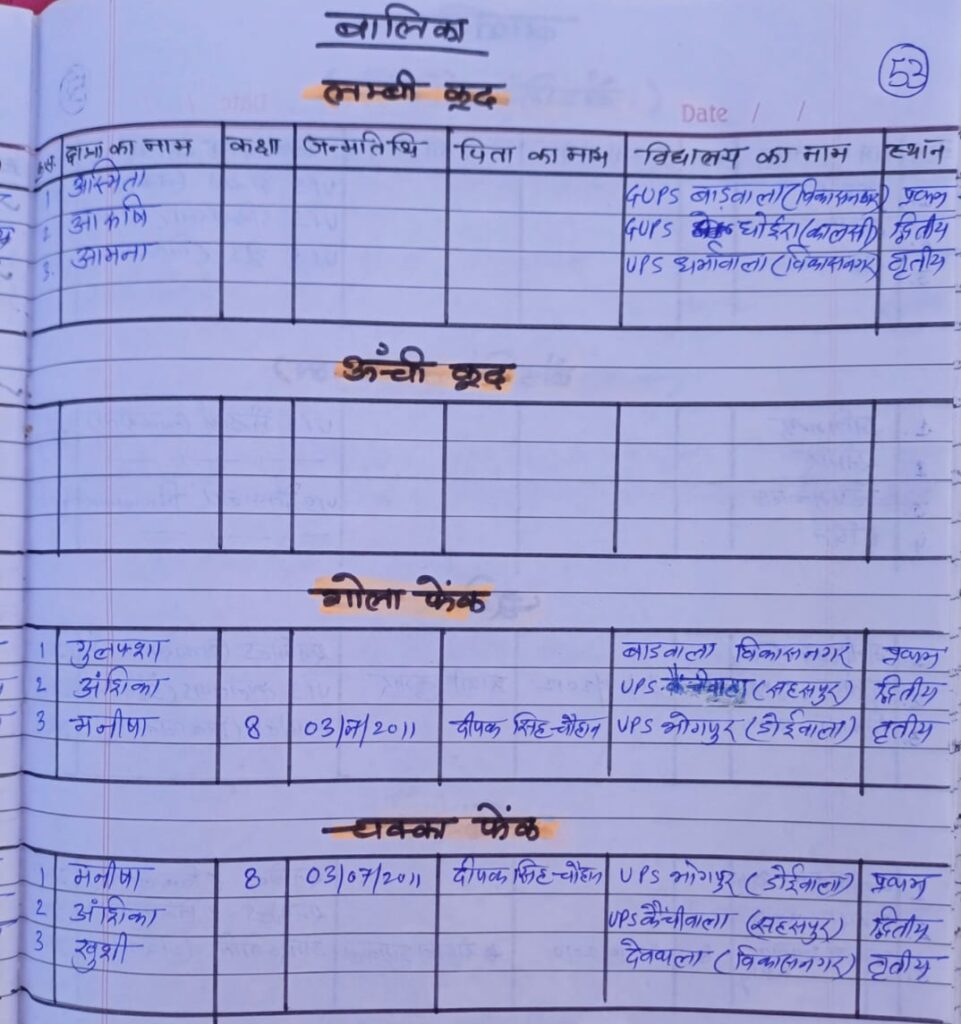 बालिका
53
लम्बी कूद
Date / /
क्र.सं. छात्रा का नाम कक्षा जन्मतिथि पिता का नाम विद्यालय का नाम स्थान
1 अस्मिता GUPS बाड़वाला (विकासनगर) प्रथम
2 आकृषि GUPS धोईरा (कालसी) द्वितीय
3. आमना UPS धर्मावाला (विकासनगर) तृतीय
ऊँची कूद
गोला फेंक
1 गुलफ्शा बाडवाला विकासनगर प्रथम
2 अंशिका UPS कैंचीवाला (सहसपुर) द्वितीय
3 मनीषा 8 03/07/2011 दीपक सिंह चौहान UPS भोगपुर (डोईवाला) तृतीय
चक्का फेंक
1 मनीषा 8 03/07/2011 दीपक सिंह चौहान UPS भोगपुर (डोईवाला) प्रथम
2 अंशिका UPS कैंचीवाला (सहसपुर) द्वितीय
3 खुशी देवथला (विकासनगर) तृतीय